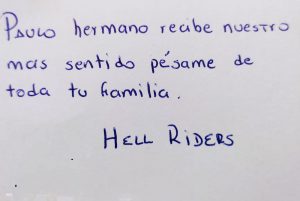 PAULO hermano recibe nuestro
mas sentido pésame de
toda tu familia.
HELL RIDERS